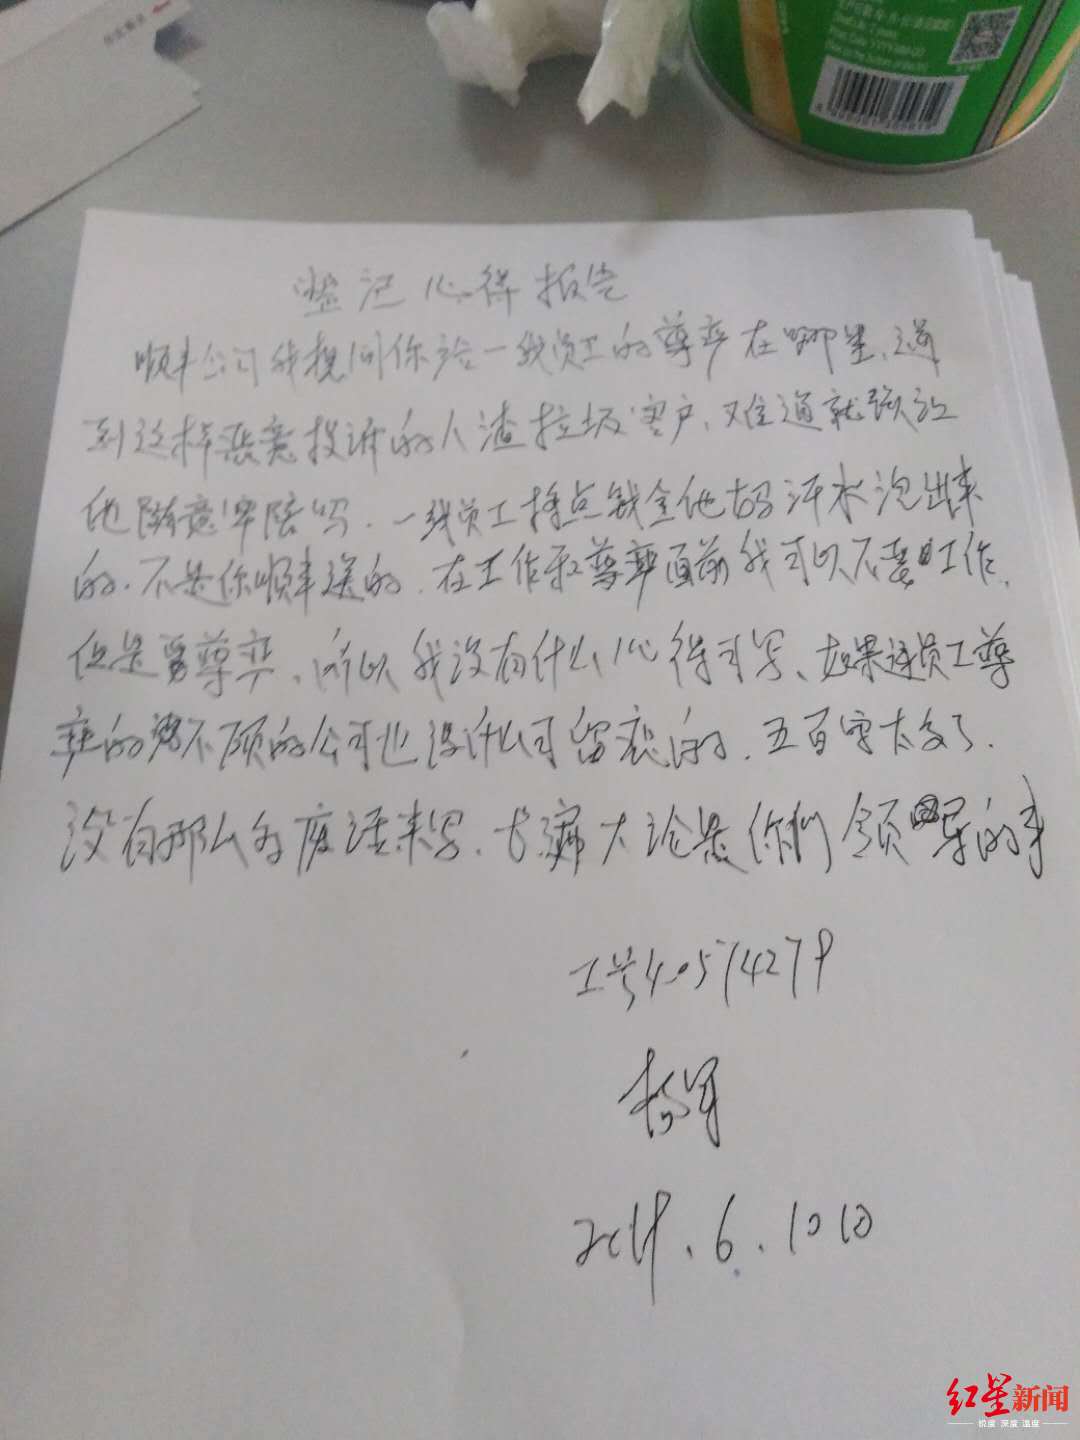 心得报告
顺丰公司我想问你给一线员工的尊严在哪里、遇
到这样恶意投诉的人渣垃圾客户、难道就
他随意 吗.一线员工挣点钱全他妈汗水泡出来
的.不是你顺丰送的.在工作和尊严面前我可以不要工作、
但是要尊严、所以我没有什么心得可写、如果连员工尊
严的都不顾的公司也没什么可留恋的.五百字太多了.
没有那么多废话来写、长篇大论是你们领导的事
工号40574279
杨军
2019.6.10日
红星新闻
锐度·深度·温度